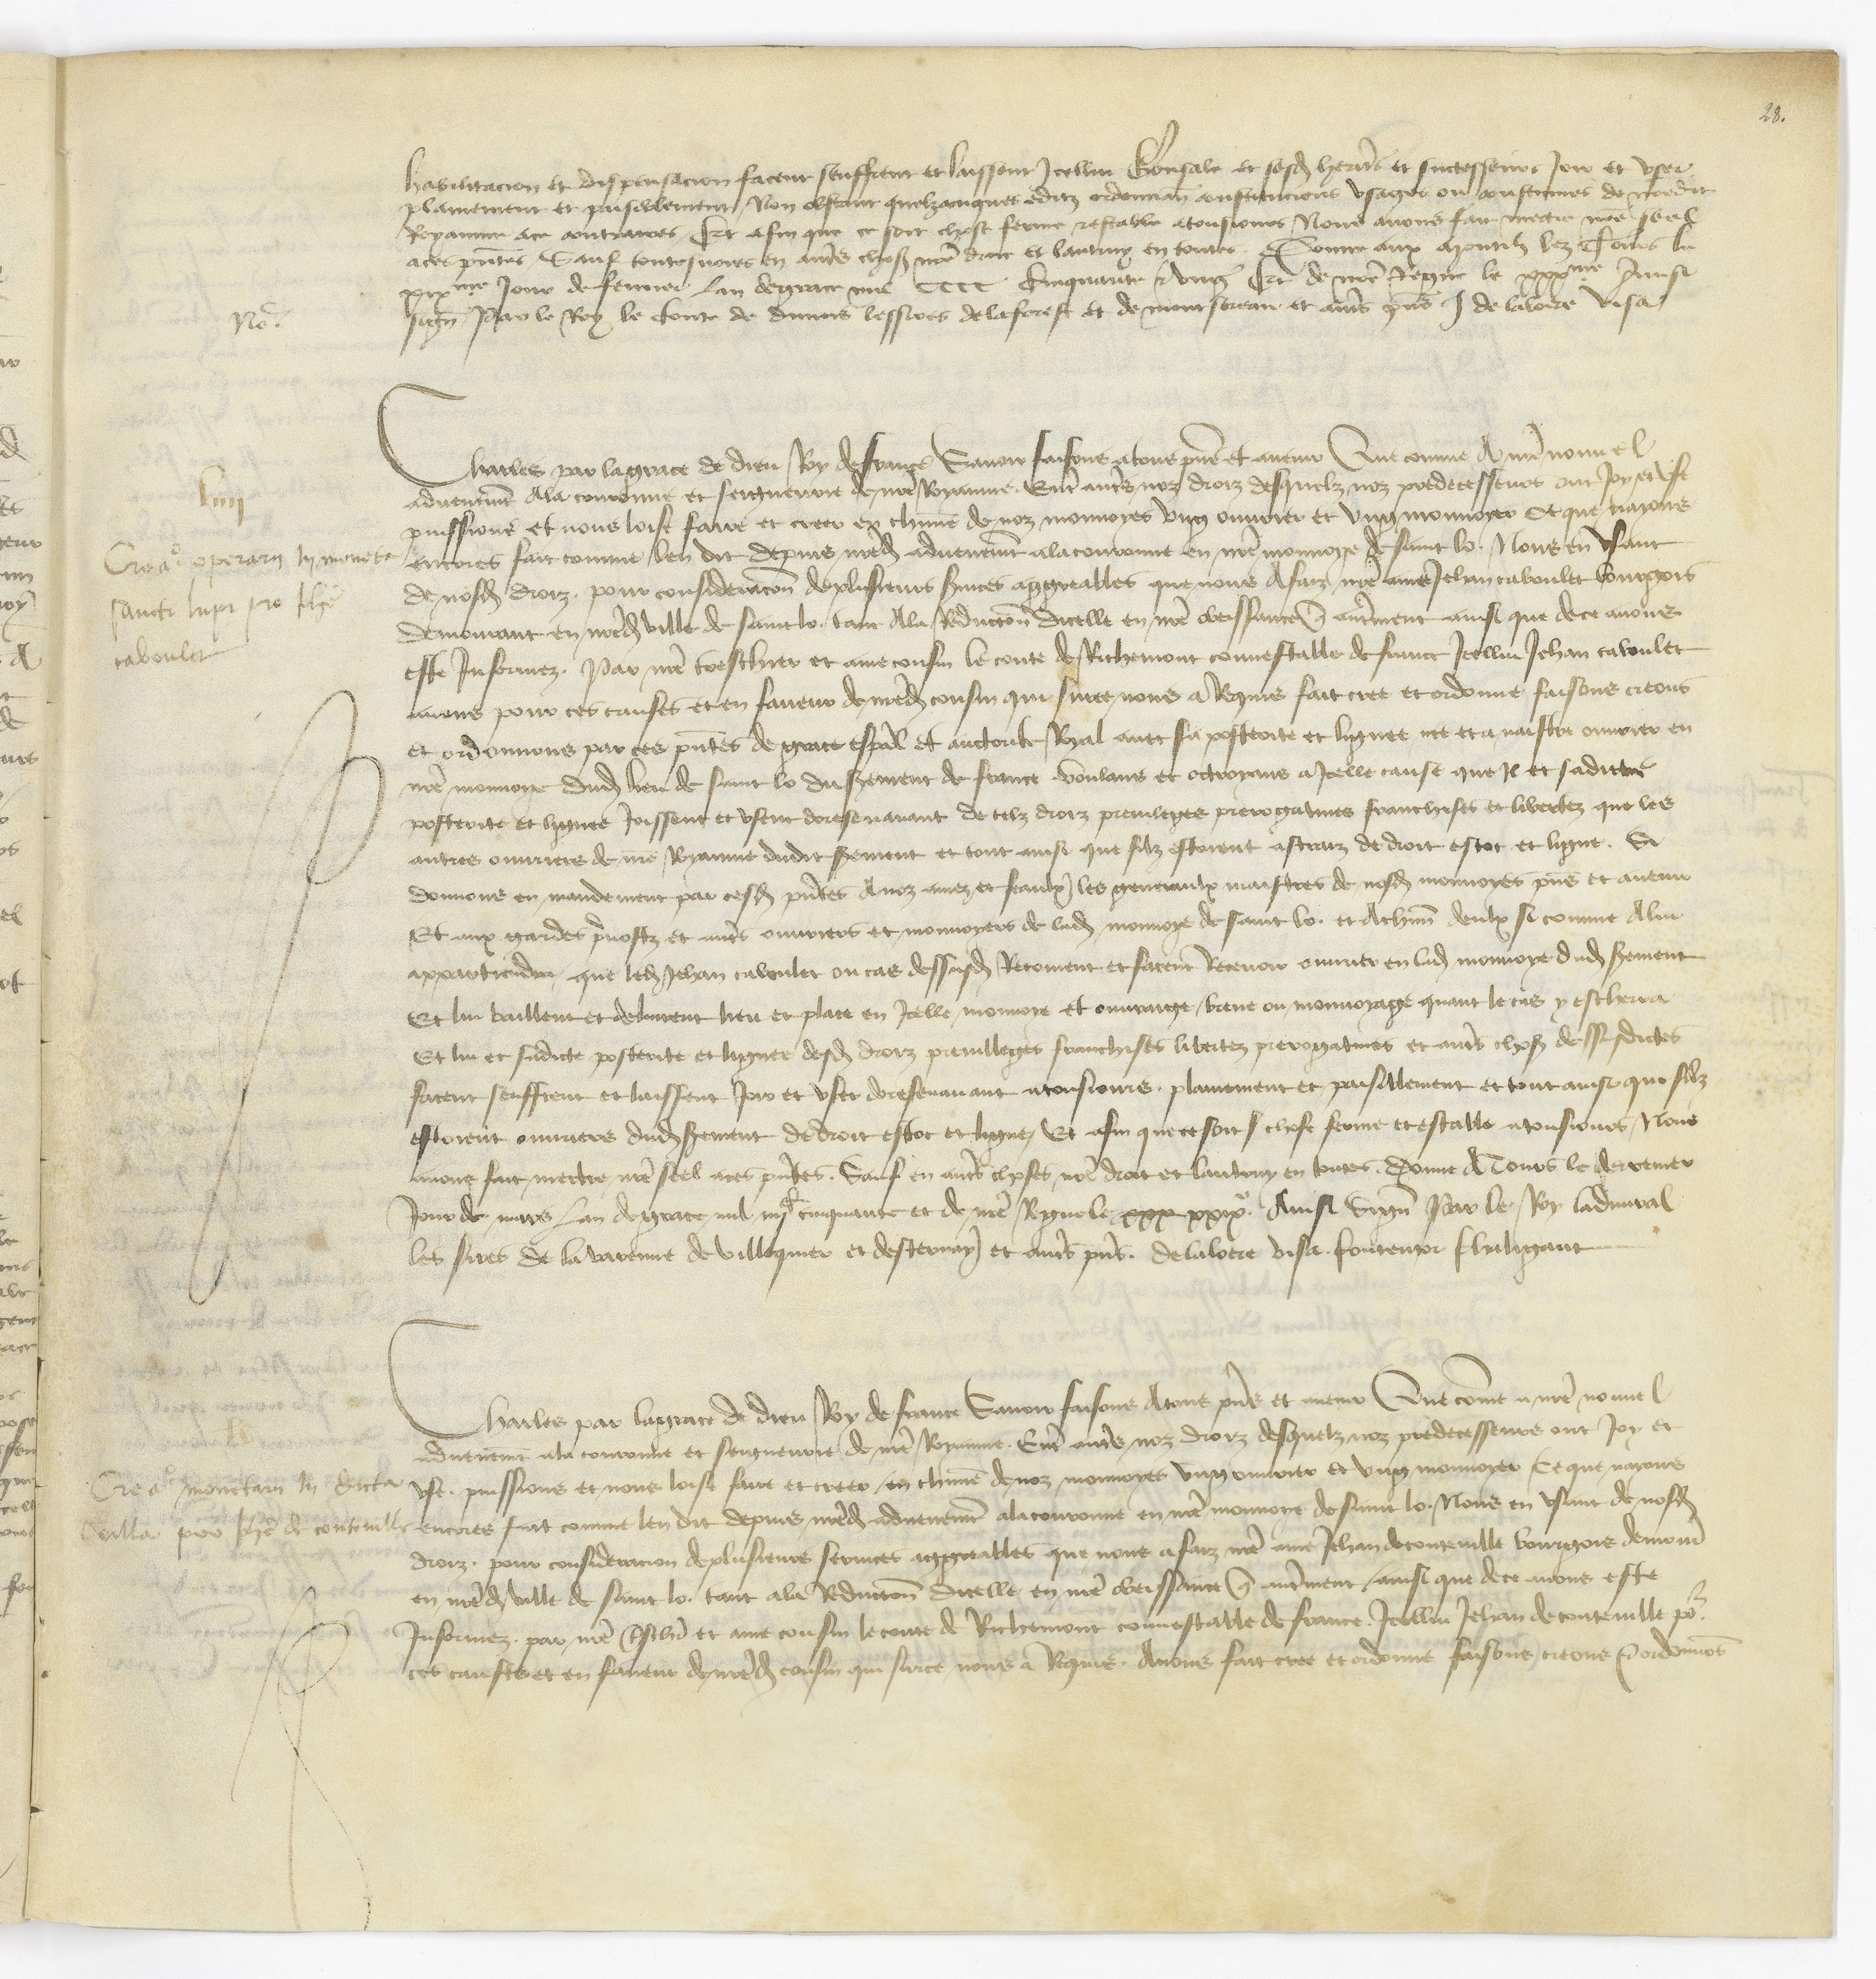 28.
habilitacion et dispensacion facent seuffrent et laissent Icellui Gonsale et sesd heritrs et successeurs Joir et vser
plainement et paisiblement / Non obstant quelzconques editz ordonnan constitucions vsages ou coustumes de nredit
Royaume ace contraires. Et afin que ce soit chose ferme & estable atousiours Nous auons fait mectre nre seel
aces pntes / Sauf toutesuoies en autrs choses nre droit et lautruy en toutes. Donne aux Montilz lez Tours le
xixme Jour de feurier Lan de grace mil CCCC Cinquante & vng Et de nre Regne le xxxme Ainsi
sign Par le Roy le Conte de dunois les sires de la forest et de monsoreau et autrs pns J de laloere Visa
No.
Charles par la grace de dieu Roy de france Sauoir faisons atous pns et auenir Que comme A nre nouuel
aduenemt Ala couronne et seigneurie de nre Royaume. Entre autrs noz droiz desquelz noz predecesseurs ont joy et vse
puissions et nous loise faire et creer en chune de noz monnoyes vng ouurier et vng monnoyer Et que nayons
encores fait comme len dit depuis nred aduenemt ala couronne en nre monnoye de saint lo. Nous en vsant
de nosd droiz. pour consideracon de plusieurs seruices aggreables que nous A faiz nre ame Jehan caboulet bourgois
demourant en nred ville de saint lo. tant Ala Reduction dicelle en nre obeissance & autrement ainsi que de ce auons
este Informez. Par nre treschier et ame cousin le conte de Richemont connestable de france Icellui Jehan caboulet
auons pour ces causes et en faueur de nred cousin qui sur ce nous a Requis fait cree et ordonne faisons creons
et ordonnons par ces pntes de grace espal et auctorite Royal auec sa posterite et lignee nee et a naistre ouurier en
nre monnoye dud lieu de saint lo du serement de france. Voulans et octroyans a Icelle cause que Il et sadicte
posterite et lignee Joissent et vsent doresenauant de telz droiz preuileges prerogatiues franchises et libertez que les
autres ouuriers de nre Royaume dudit serement et tout ainsi que silz estoient astraiz de droit estoc et ligne. Si
donnons en mandement par cesd pntes A noz amez et feaulx les generaulx maistres de nosd monnoyes pns et auenir
Et aux gardes preuostz et autrs ouuriers et monnoyers de lad monnoye de saint lo. et Achun deulx si comme Alui
appartiendra que led Jehan caboulet ou cas dessusd Recoiuent et facent Receuoir ouurier en lad monnoye dud serement
Et lui baillent et deliurent lieu et place en Icelle monnoye et ouurage, breue ou monnoyage quant le cas y escherra
Et lui et sadicte posterite et lignee desd droiz preuilleges franchises libertez prerogatiues et autrs choses dessusdictes
facent seuffrent et laissent Joir et vser doresenauant atousiours. plainement et paisiblement et tout ainsi que silz
estoient ouuriers dud serement de droit estoc et ligne, Et afin que ce soit chose ferme et estable atousiours, Nous
auons fait mectre nre seel aces pntes. Sauf en autrs choses nre droit et lautruy en toutes. Donne A Tours le derrenier
Jour de mars Lan de grace mil iiijc cinquante et de nre Regne le xxx xxixe. Ainsi Signe Par le Roy ladmiral
les sires de la varenne de villequier et desternay et autrs pns. de laloere visa. Contentor Chaligaut
liiij
Creao operarij In moneta
sancti lupi pro Jhe
caboulet
Charles par la grace de dieu Roy de france Sauoir faisons Atous pns et auenir Que come a nre nouuel
aduenemt ala couronne et seigneurie de nre Royaume. Entre autrs noz droiz desquelz noz predecesseurs ont Joy et
vse. puissions et nous loise faire et creer en chune de noz monnoyes vng ouurier et vng monnoyer Et que nayons
encores fait comme len dit depuis nred aduenemt ala couronne en nre monnoye de saint lo. Nous en vsant de nosd
droiz. pour consideracion de plusieurs seruices aggreables que nous a faiz nre ame Jehan de conteuille bourgois demour
en nred ville de saint lo. tant ala Reduction dicelle en nre obeissance & autrement, ainsi que de ce auons este
Informez. par nre treschr et ame cousin le conte de Richemont connestable de france. Icellui Jehan de conteuille por
ces causes et en faueur de nred cousin qui sur ce nous a Requis. Auons fait cree et ordonne faisons creons & ordonnons
lv
Creao monetarij In dicta
villa pro Jhe de conteuille